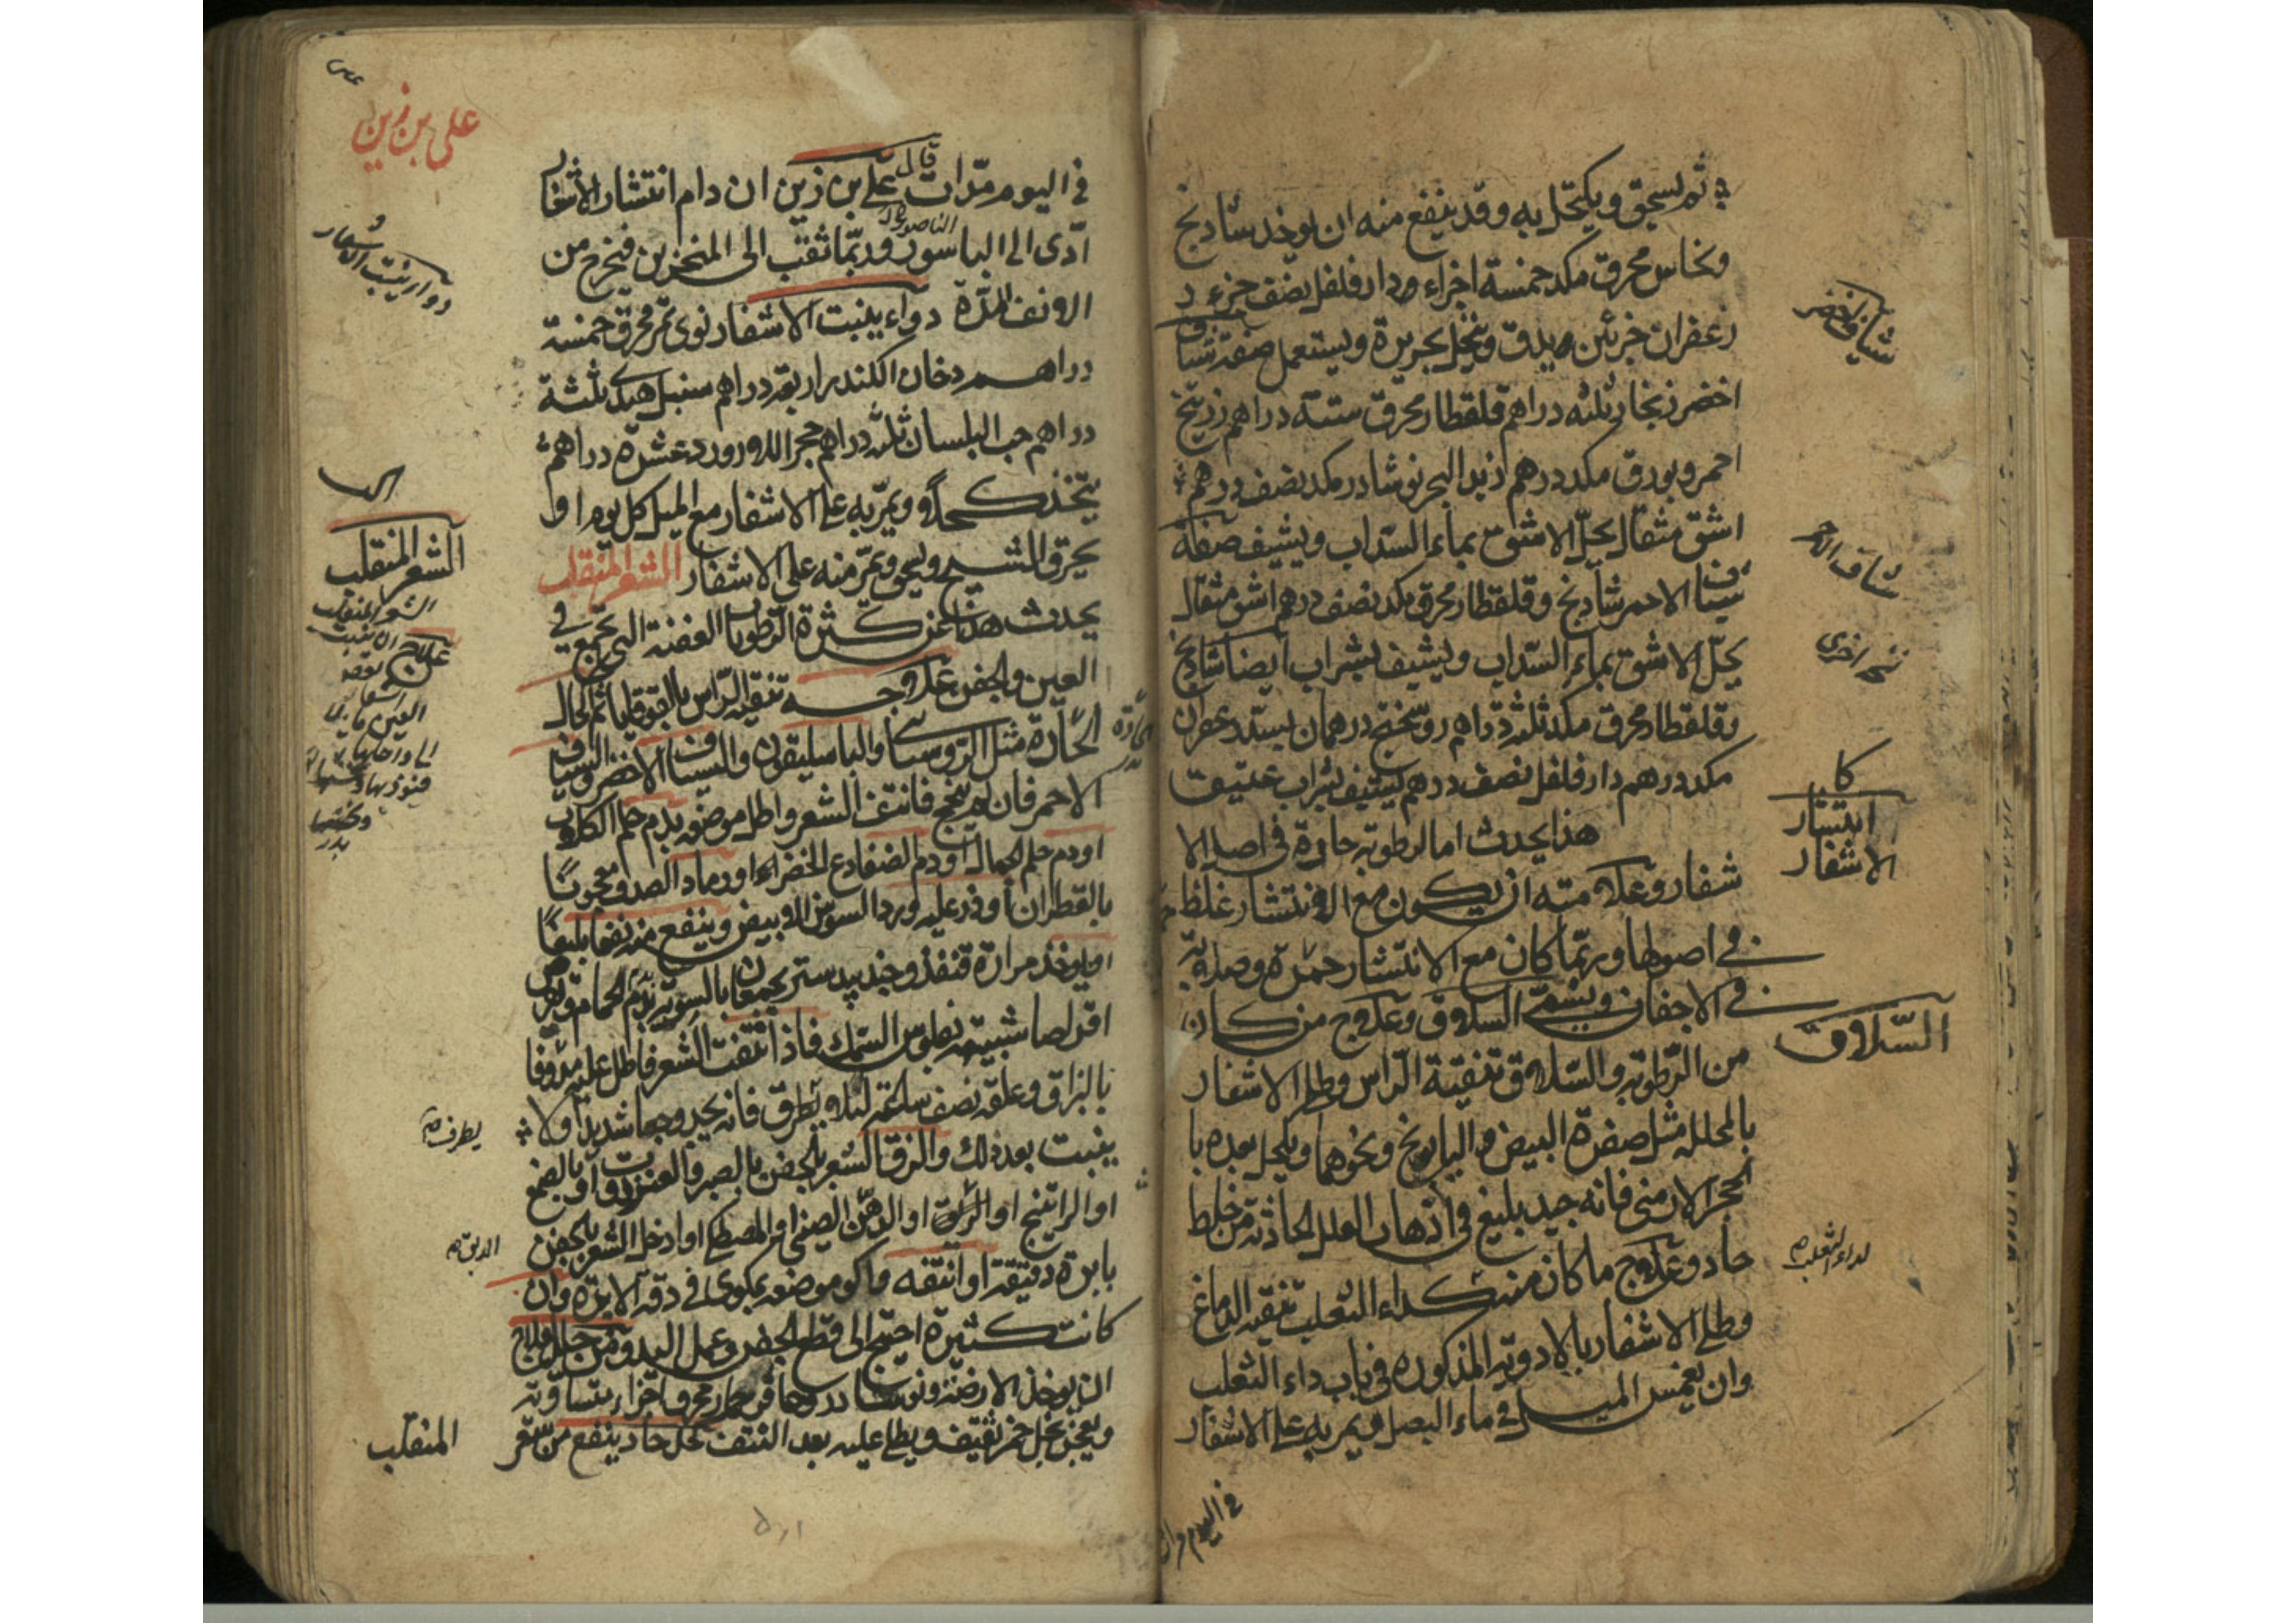 ثم يسحق ويكتحل به وقد ينفع منه ان يوخذ شاذنج
ونحاس محرق مكد خمسة اجزاء ودار فلفل نصف جزء
زعفران جزئين ويدق وينخل بحريرة ويستعمل صفة شياف
اخضر زنجار ثلثه دراهم قلقطار محرق ستة دراهم زرنيخ
احمر وبورق مكد درهم زبد البحر نوشادر مكد نصف درهم
اشق مثقال يحلّ الاشق بماء السّداب ويشيف صفة
شياف الاحمر شاذنج وقلقطار محرق مكد نصف درهم اشق مثقال
يحلّ الاشق بماء السّداب ويشيف بشراب ايضا شاذنج
وقلقطار محرق مكد ثلثة دراهم روسختج درهمان
مكد درهم دار فلفل نصف درهم يشيف بشراب عتيق
هذا يحدث اما لرطوبة حادة فى اصل الا
شفار وعلامته ان يكون مع الانتشار غلظ
فى اصولها وربّما كان مع الانتشار حمرة وصلابة
فى الاجفان ويسمّى السلاق وعلاج من كان
من الرّطوبة والسّلاق تنقية الرّاس وطلى الاشفار
بالمحلله مثل صفرة البيض والبابونج ونحوهما ويكحل بعده با
لحجر الارمنى فانه جيد بليغ فى اذهاب العلل الحادثة من خلط
حاد وعلاج ما كان منه كداء الثعلب تنقية الدماغ
وطلى الاشفار بالادوية المذكوره فى باب داء الثعلب
وان يغمس الميل فى ماء البصل ويمر به على الاشفار
فى اليوم مرات
شياف اخضر
شياف الاحمر
اخرى
انتشار
الاشفار
السّلاق
لداء الثعلب
فى اليوم مرّات قال على بن زين ان دام انتشار الاشفار
ادّى الى الباسور وربّما ثقب الى المنخرين فيخرج من
الانف المدّة دواء ينبت الاشفار نوى تمر محرق خمسة
دراهم دخان الكندر اربعة دراهم سنبل هندى ثلثة
دراهم حب البلسان ثلثه دراهم حجر اللازورد عشرة دراهم
يتّخذ كحلا ويمرّ به على الاشفار مع الميل كل يوم او
يحرق الشيح ويسحق ويمرّ منه على الاشفار الشعر المنقلب
يحدث هذا عن كثرة الرّطوبات العفنة التى تجتمع فى
العين والجفن علاجه تنقية الرّاس بالقوقايا ثم الاكحال
الحادّة مثل الرّوسنايا والباسليقون والشياف الاخضر والشياف
الاحمر فان لم ينجح فانتف الشعر واطل موضعه بدم حلم الكلاب
او دم حلم الجمال او دم الضفادع الخضراء او رماد الصدف معجونًا
بالقطران او ذر عليه ورد السوسن الابيض وينفع منه نفعا بليغًا
او يوخذ مرارة قنفذ وجند بيدستر يجمعان بالسويّة بدم الحمام ويقرص
اقراصا شبيهة بفلوس السّمك فاذا انتفت الشعر فاطل عليه مدوفا
بالبزاق وعلّقه نصف ساعة لئلا يطرف فانه يجد وجعا شديدا ولا
ينبت بعد ذلك والزق الشعر بالجفن بالصبر والعنزروت او بالصمغ
او الراتينج او الدبق او الدهن الصينى او المصطكى او ادخل الشعر بالجفن
بابرة دقيقة او انتفه واكو موضعه بمكوى فى دقّة الابرة وان
كانت كثيرة احتيج الى قطع الجفن وعمل اليد ومن جيّد العلاج
ان يوخذ الارضة ونوشادر وحافر حمار محرق اجزاء متساوية
ويعجن بخل خمر ثقيف ويطلى عليه بعد النتف كحل حاد ينفع من الشعر
المنقلب
على بن زين
دواء ينبت الاشفار
الشعر المنقلب
علاج
يطرف
الدبق